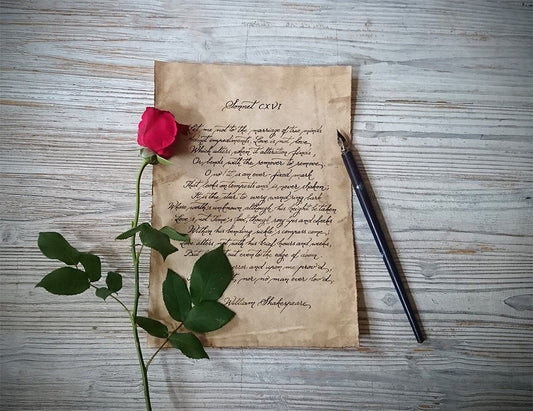 Sonnet CXVI
Let me not to the marriage of true minds
Admit impediments. Love is not love
Which alters when it alteration finds,
Or bends with the remover to remove;
O no! it is an ever fixed mark
That looks on tempests and is never shaken;
It is the star to every wandering bark
Whose worth's unknown although his height be taken
Love is not Time's fool, though rosy lips and cheeks
Within his bending sickle's compass come;
Love alters not with his brief hours and weeks,
But it out even to the edge of doom
and upon me proved,
nor no man ever loved.
William Shakespeare